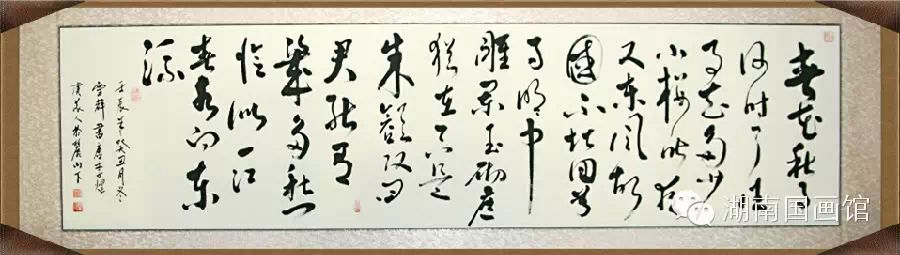 春花秋月
何时了往
事知多少
小楼昨夜
又东风故
國不堪回首
月明中
雕阑玉砌应
犹在只是
朱颜改问
君能有
几多愁
恰似一江
春水向东
流
壬辰年癸丑月冬
書唐李煜
虞美人於麓山下
湖南国画馆